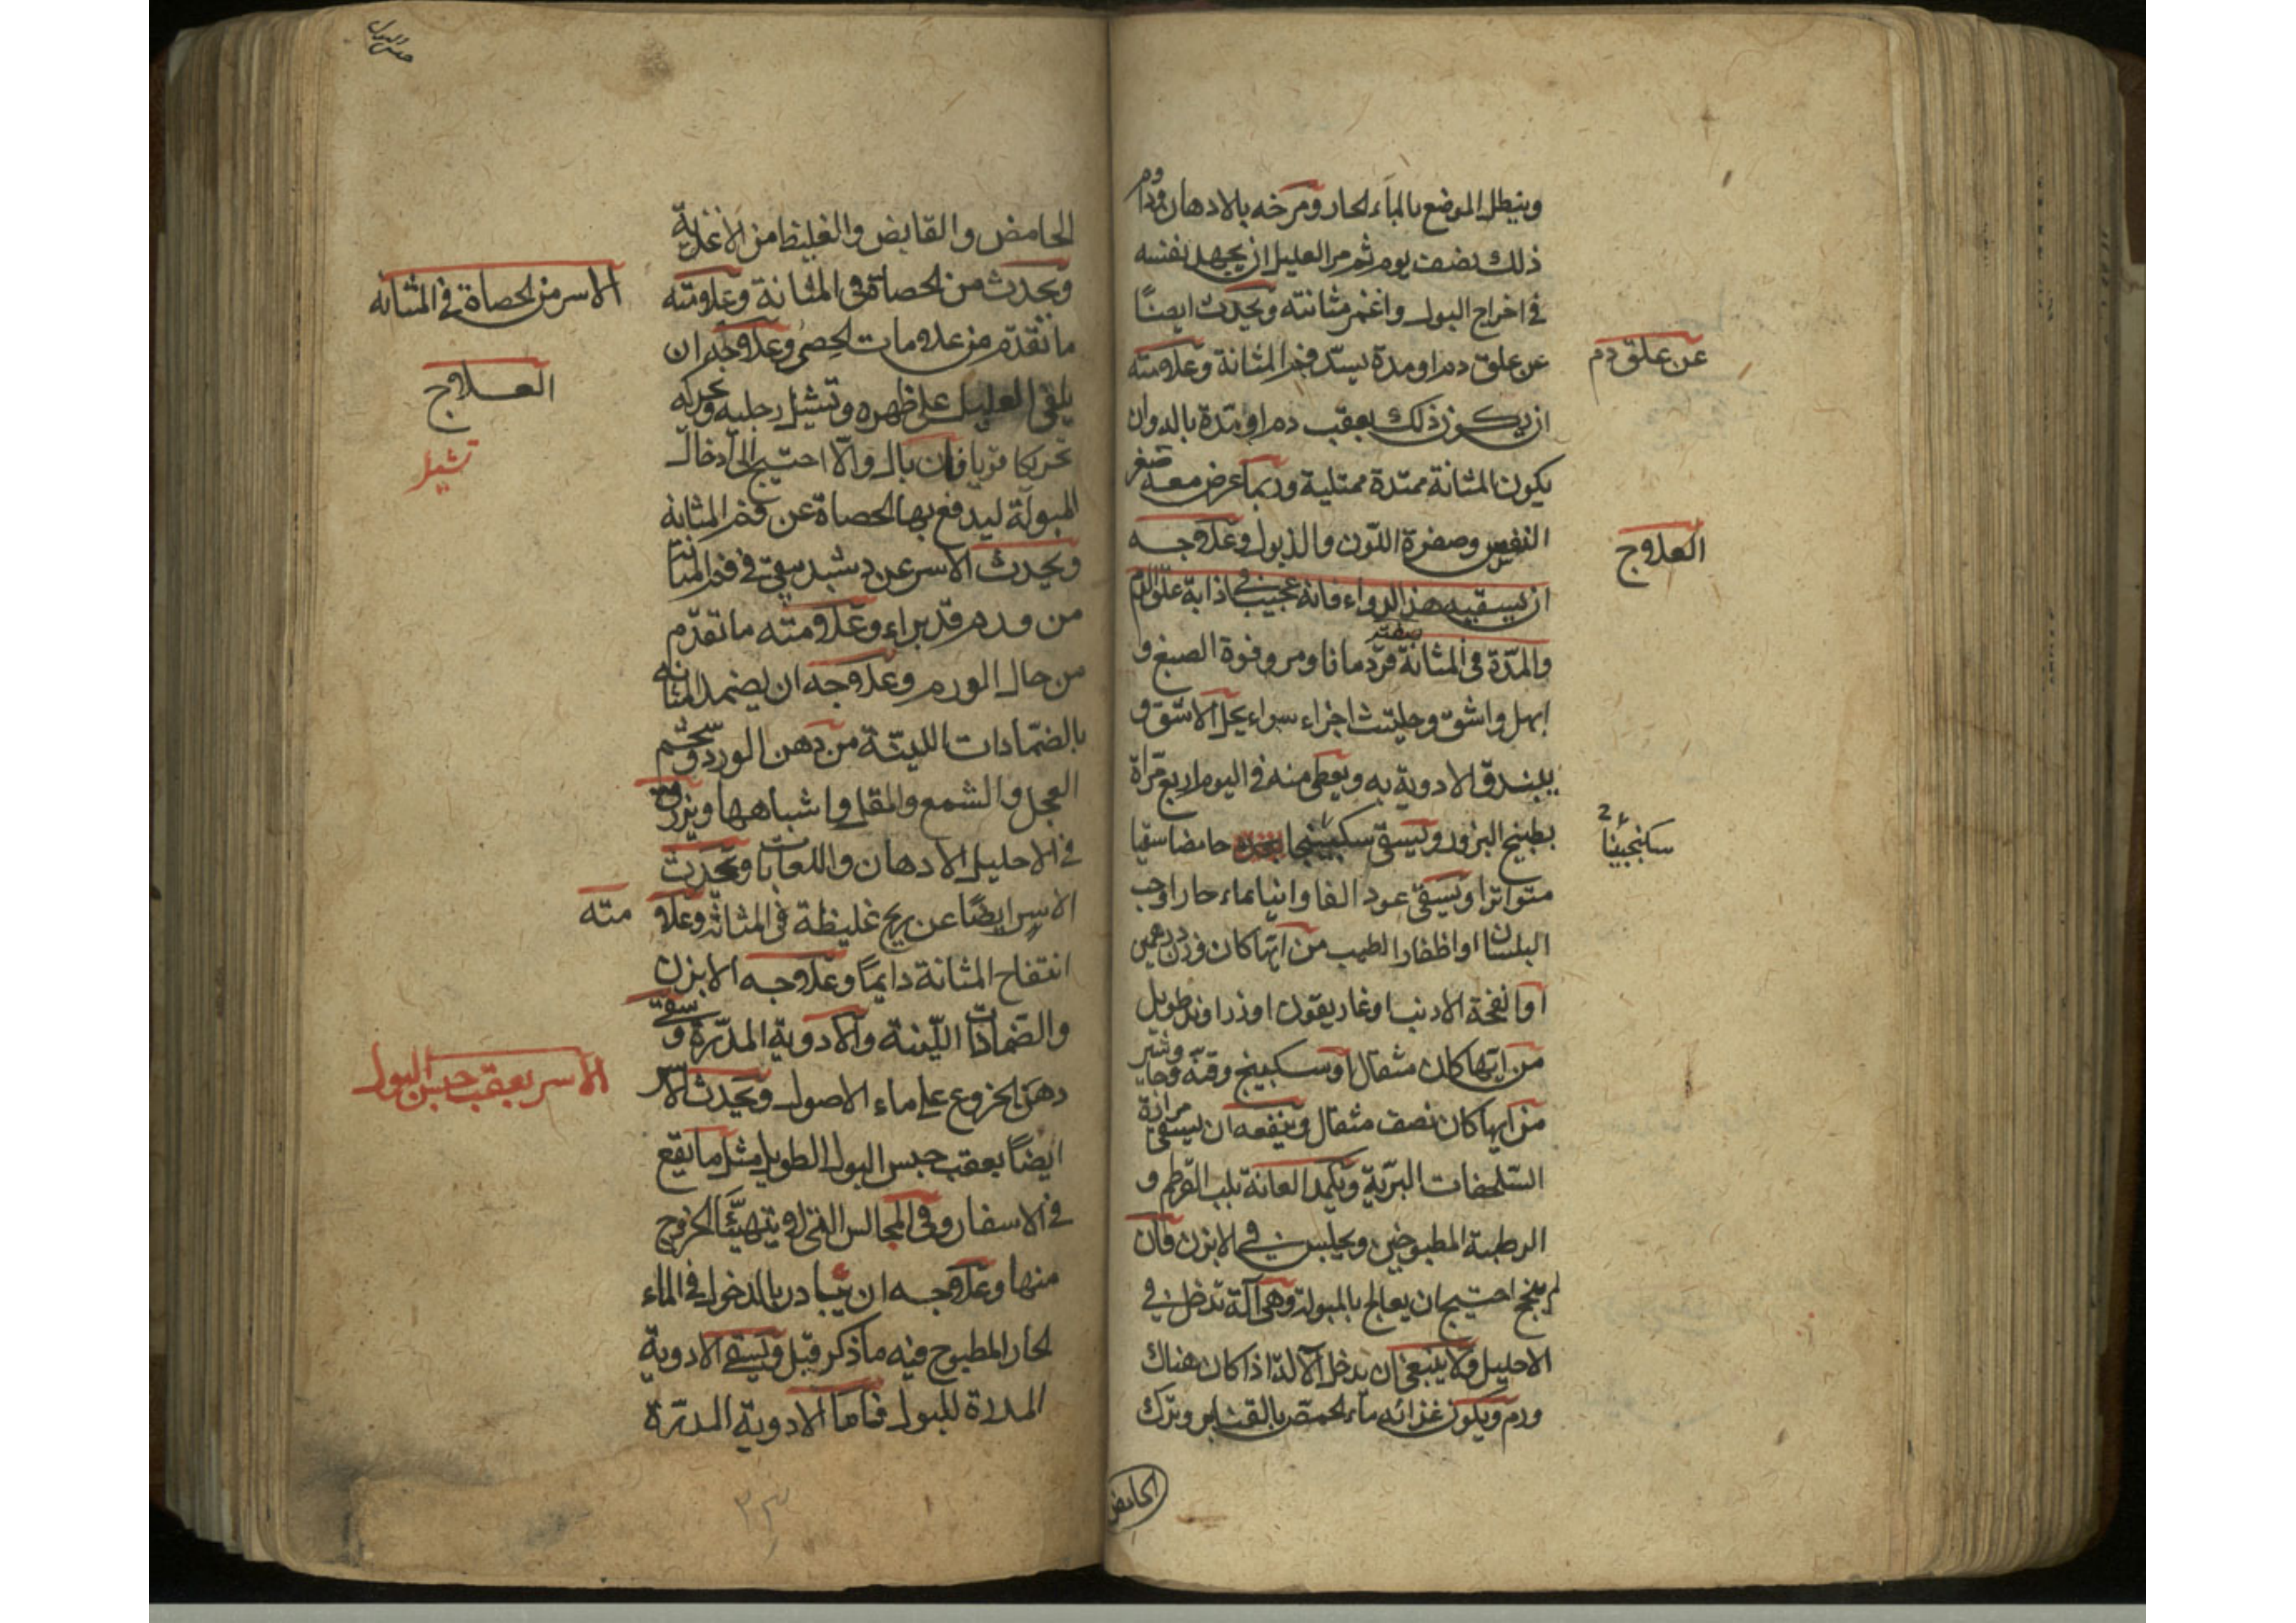 وينطل الموضع بالماء الحار ومرخه بالادهان ودم
ذلك نصف يوم ثم مر العليل ان يجهد نفسه
في اخراج البول واغمز مثانته ويحدث ايضًا
عن علق دم او مدة يسدّ فم المثانة وعلامته
عن علق دم
ان يكون ذلك بعقب دم او مدّة بالد وان
يكون المثانة ممتدة ممتلية وربما عرض معه صغر
النفس وصفرة اللون والذبول وعلاجه
العلاج
ان يسقيه هذا الدواء فانه عجيب في اذابة علق الدم
والمدّة في المثانة صفته قردمانا ومر وفوة الصبغ و
ابهل واشق وحلتيت اجزاء سواء يحل الاشق و
يبندق الادوية به ويعطى منه في اليوم اربع مراة
بطبيخ البزور ويسقى سكنجبينجا حامضا سقيا
سكنجبينًا
متواترا ويسقى عود الفاوانيا بماء حار او حب
البلسان او اظفار الطيب من ايها كان وزن درهمين
او انفحة الارنب او غاريقون او زراوند طويل
من ايها كان مثقال او سكبينج وقنه وجاوشير
من ايها كان نصف مثقال وينفعه ان يسقى مرارة
السلحفات البرّية ويكمد العانة بلب القرطم و
الرطبة المطبوخين ويجلس في الابزن فان
لم ينجح احتيج ان يعالج بالمبولة وهي آلة تدخل في
الاحليل ولا ينبغي ان يدخل الآلة اذا كان هناك
ورم ويكون غذائه ماء الحمص بالقنابر وترك
الحامض
حبس البول
الحامض والقابض والغليظ من الاغذية
ويحدث من الحصاة في المثانة وعلامته
الاسر من الحصاة في المثانه
ما تقدّم من علامات الحصى وعلاجه ان
يلقى العليل على ظهره وتشيل رجليه وتحركه
العلاج
تشيل
تحريكا قويا فان بال والّا احتيج الى ادخال
المبولة ليدفع بها الحصاة عن فم المثانة
ويحدث الاسر عن دشبد يبقى في فم المثانة
من ورم قد براء وعلامته ما تقدّم
من حال الورم وعلاجه ان يضمد المثانه
بالضمّادات اللينّة من دهن الورد وشحم
العجل والشمع والمقل واشباهها ويزرق
في الاحليل الادهان واللعابات ويحدث
الاسر ايضًا عن ريح غليظة في المثانة وعلا مته
انتفاخ المثانة دايمًا وعلاجه الابزن
والضمادات الليّنة والادوية المدّرة ويسقى
دهن الخروع على ماء الاصول ويحدث الاسر
الاسر بعقب حبس البول
ايضًا بعقب حبس البول الطويل مثل ما يقع
في الاسفار وفي المجالس التي لا يتهيّئا الخروج
منها وعلاجه ان يبادر بالدخول في الماء
الحار المطبوخ فيه ما ذكر قبل ويسقى الادوية
المدرة للبول فاما الادوية المدرّة
٢٣